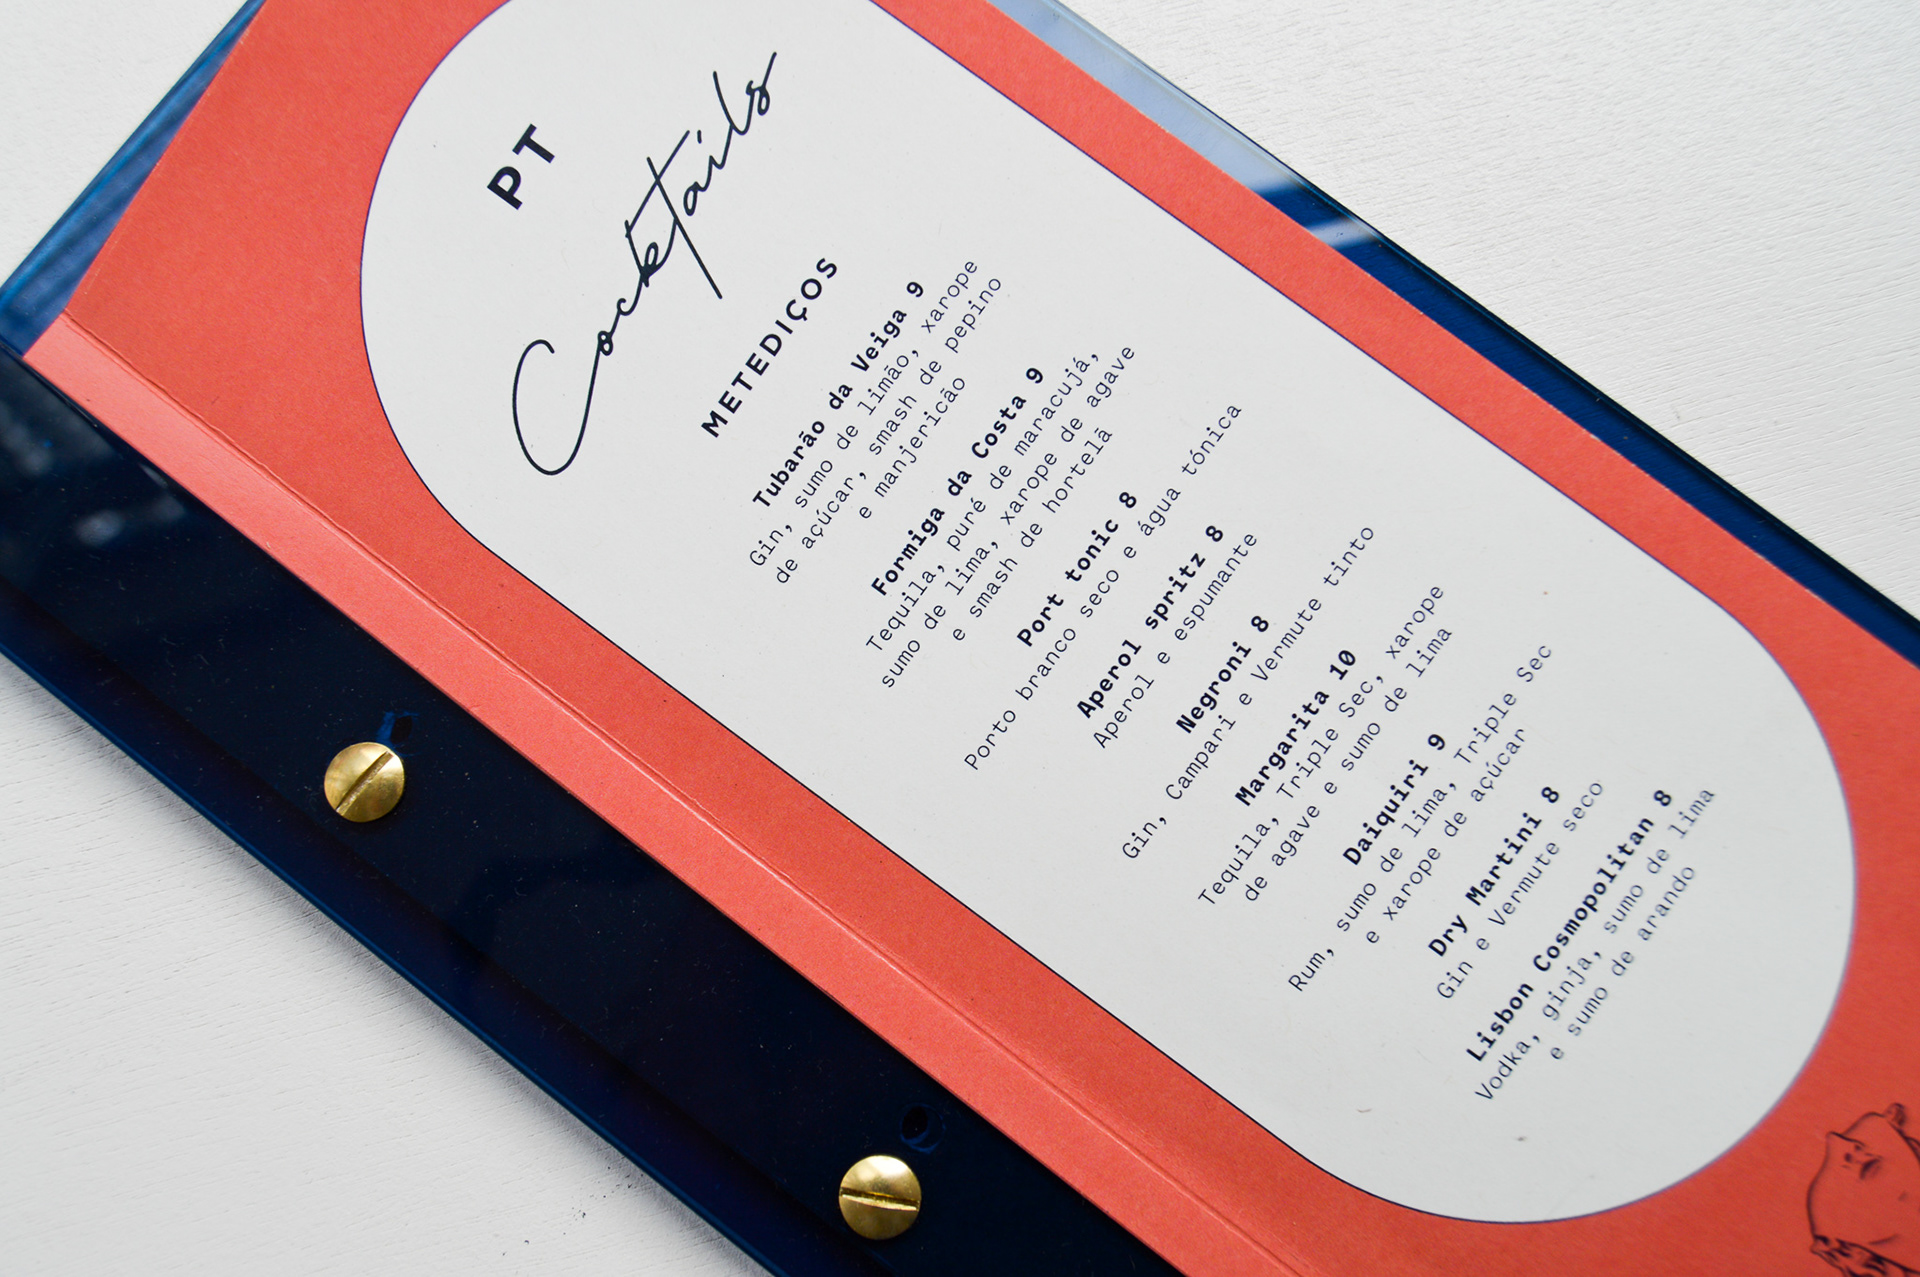 PT
Cocktails
METEDIÇOS
Tubarão da Veiga 9
Gin, sumo de limão, xarope
de açúcar, smash de pepino
e manjericão
Formiga da Costa 9
Tequila, puré de maracujá,
sumo de lima, xarope de agave
e smash de hortelã
Port tonic 8
Porto branco seco e água tónica
Aperol spritz 8
Aperol e espumante
Negroni 8
Gin, Campari e Vermute tinto
Margarita 10
Tequila, Triple Sec, xarope
de agave e sumo de lima
Daiquiri 9
Rum, sumo de lima, Triple Sec
e xarope de açúcar
Dry Martini 8
Gin e Vermute seco
Lisbon Cosmopolitan 8
Vodka, ginja, sumo de lima
e sumo de arando